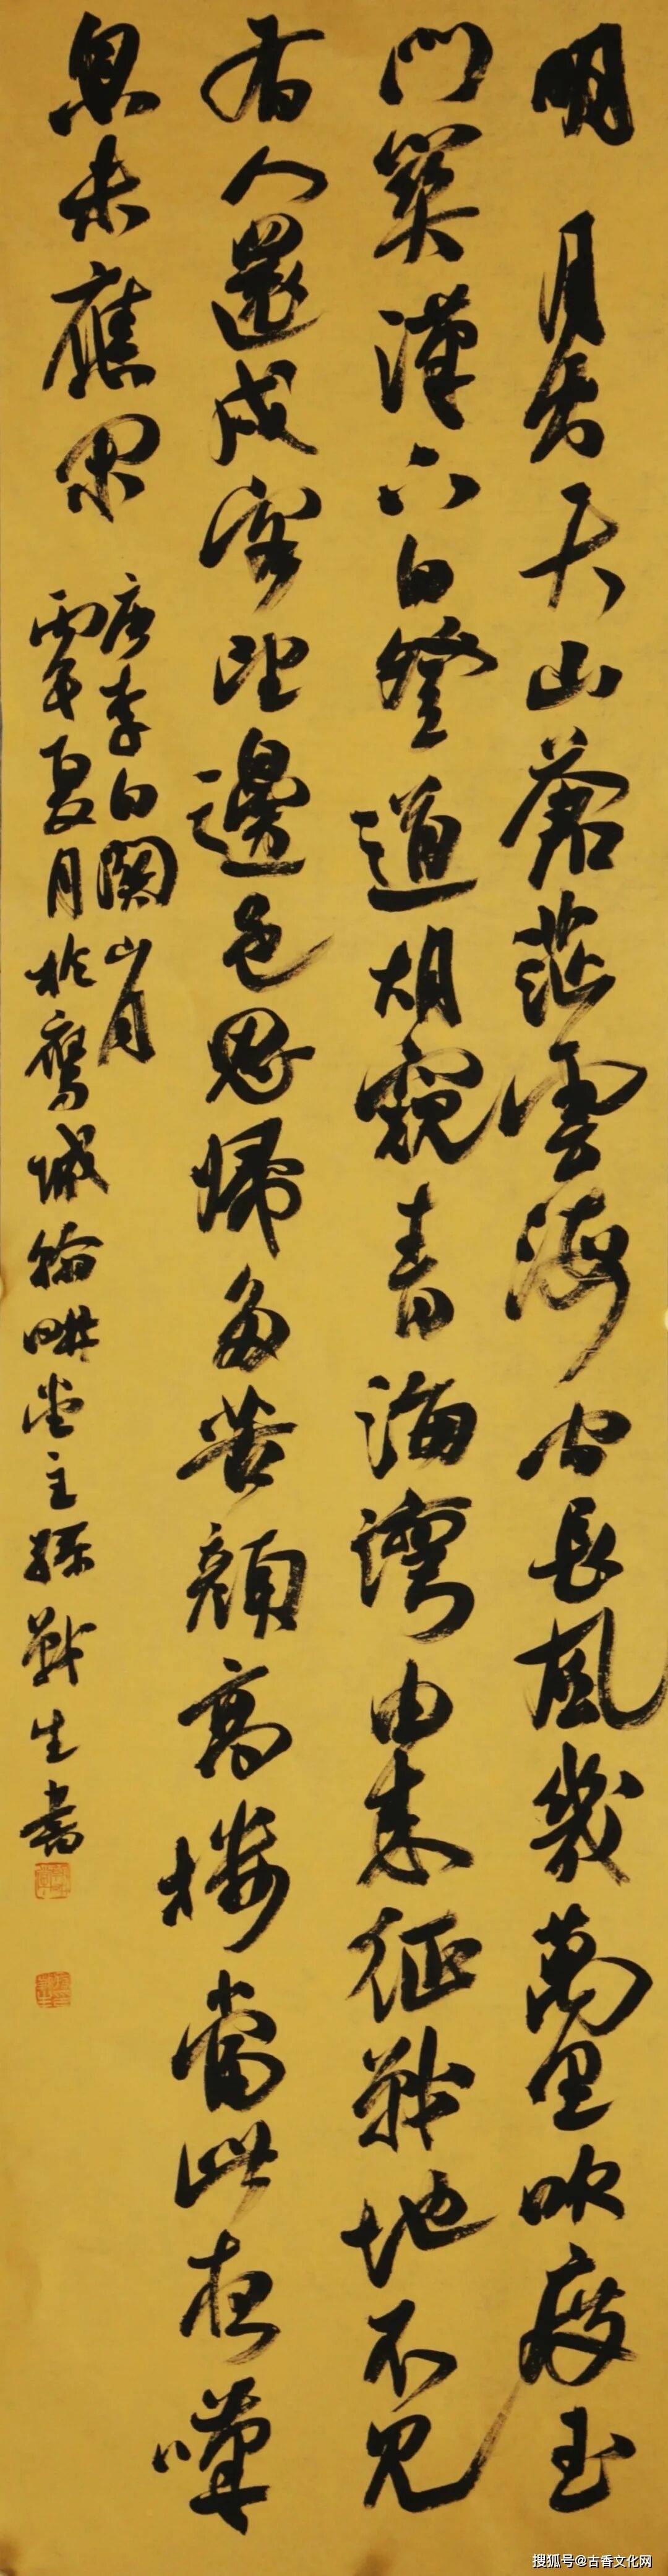 明月出天山蒼茫雲海間長風幾萬里吹度玉
門關漢下白登道胡窺青海灣由來征戰地不見
有人還戍客望邊色思歸多苦顏高樓當此夜嘆
息未應閑
唐李白關山月
丙午夏月於鷹城翰畊堂主孫戰生書
搜狐号@古香文化网